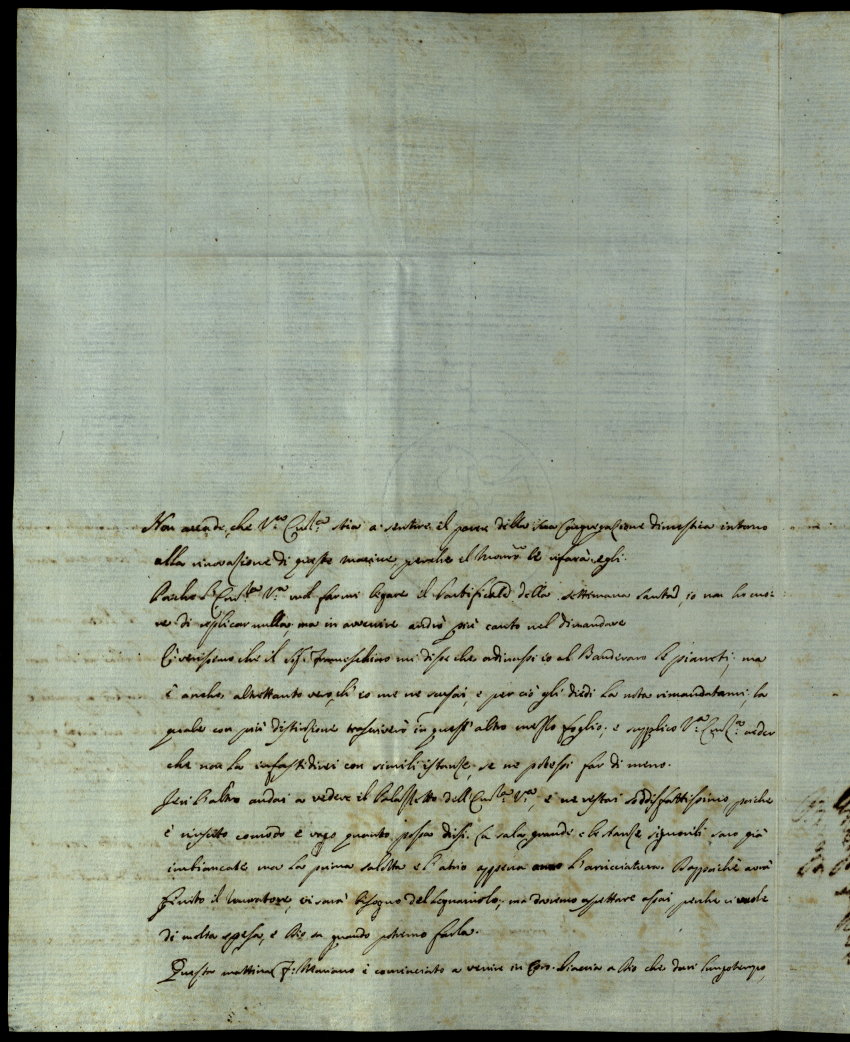 Non accade, che V.ra Em.za stia a sentire il parere della sua Congregazione dimestica intorno
alla rinovazione di queste macine, perche il le rifarà egli.
Poiche l'Em.za V.ra vuol farmi legare il Pontificale della settimana santa, io non ho cuo-
re di replicar nulla, ma in avvenire andrò più cauto nel dimandare
È verissimo che il Sig. Franceschino mi disse che ad io al Banderaro le pianeti; ma
è anche altrettanto vero, ch'io me ne scusai, e per ciò gli diedi la nota rimandatami; la
quale con più distinzione trascriverò in quest'altro mezzo foglio: e supplico V.ra Em.za creder
che non la infastidirei con simili istanze, se ne potessi far di meno.
Jeri l'altro andai a vedere il Palazzetto dell'Em.za V.ra, e ne restai soddisfattissimo, poiche
è riuscito comodo e vago quanto possa dirsi. La sala grande e le stanze signorili sono già
imbiancate ma la prima saletta e l'atrio appena l'arricciatura. Dappoiché avrà
finito il muratore, vi sarà bisogno del legnaiolo; ma dovremo aspettare assai, perche ci vuole
di molta spesa, e Dio sa quando potremo farla.
Questa mattina F. Mariano è cominciato a venire in Coro. Piaccia a Dio che duri lungotempo,